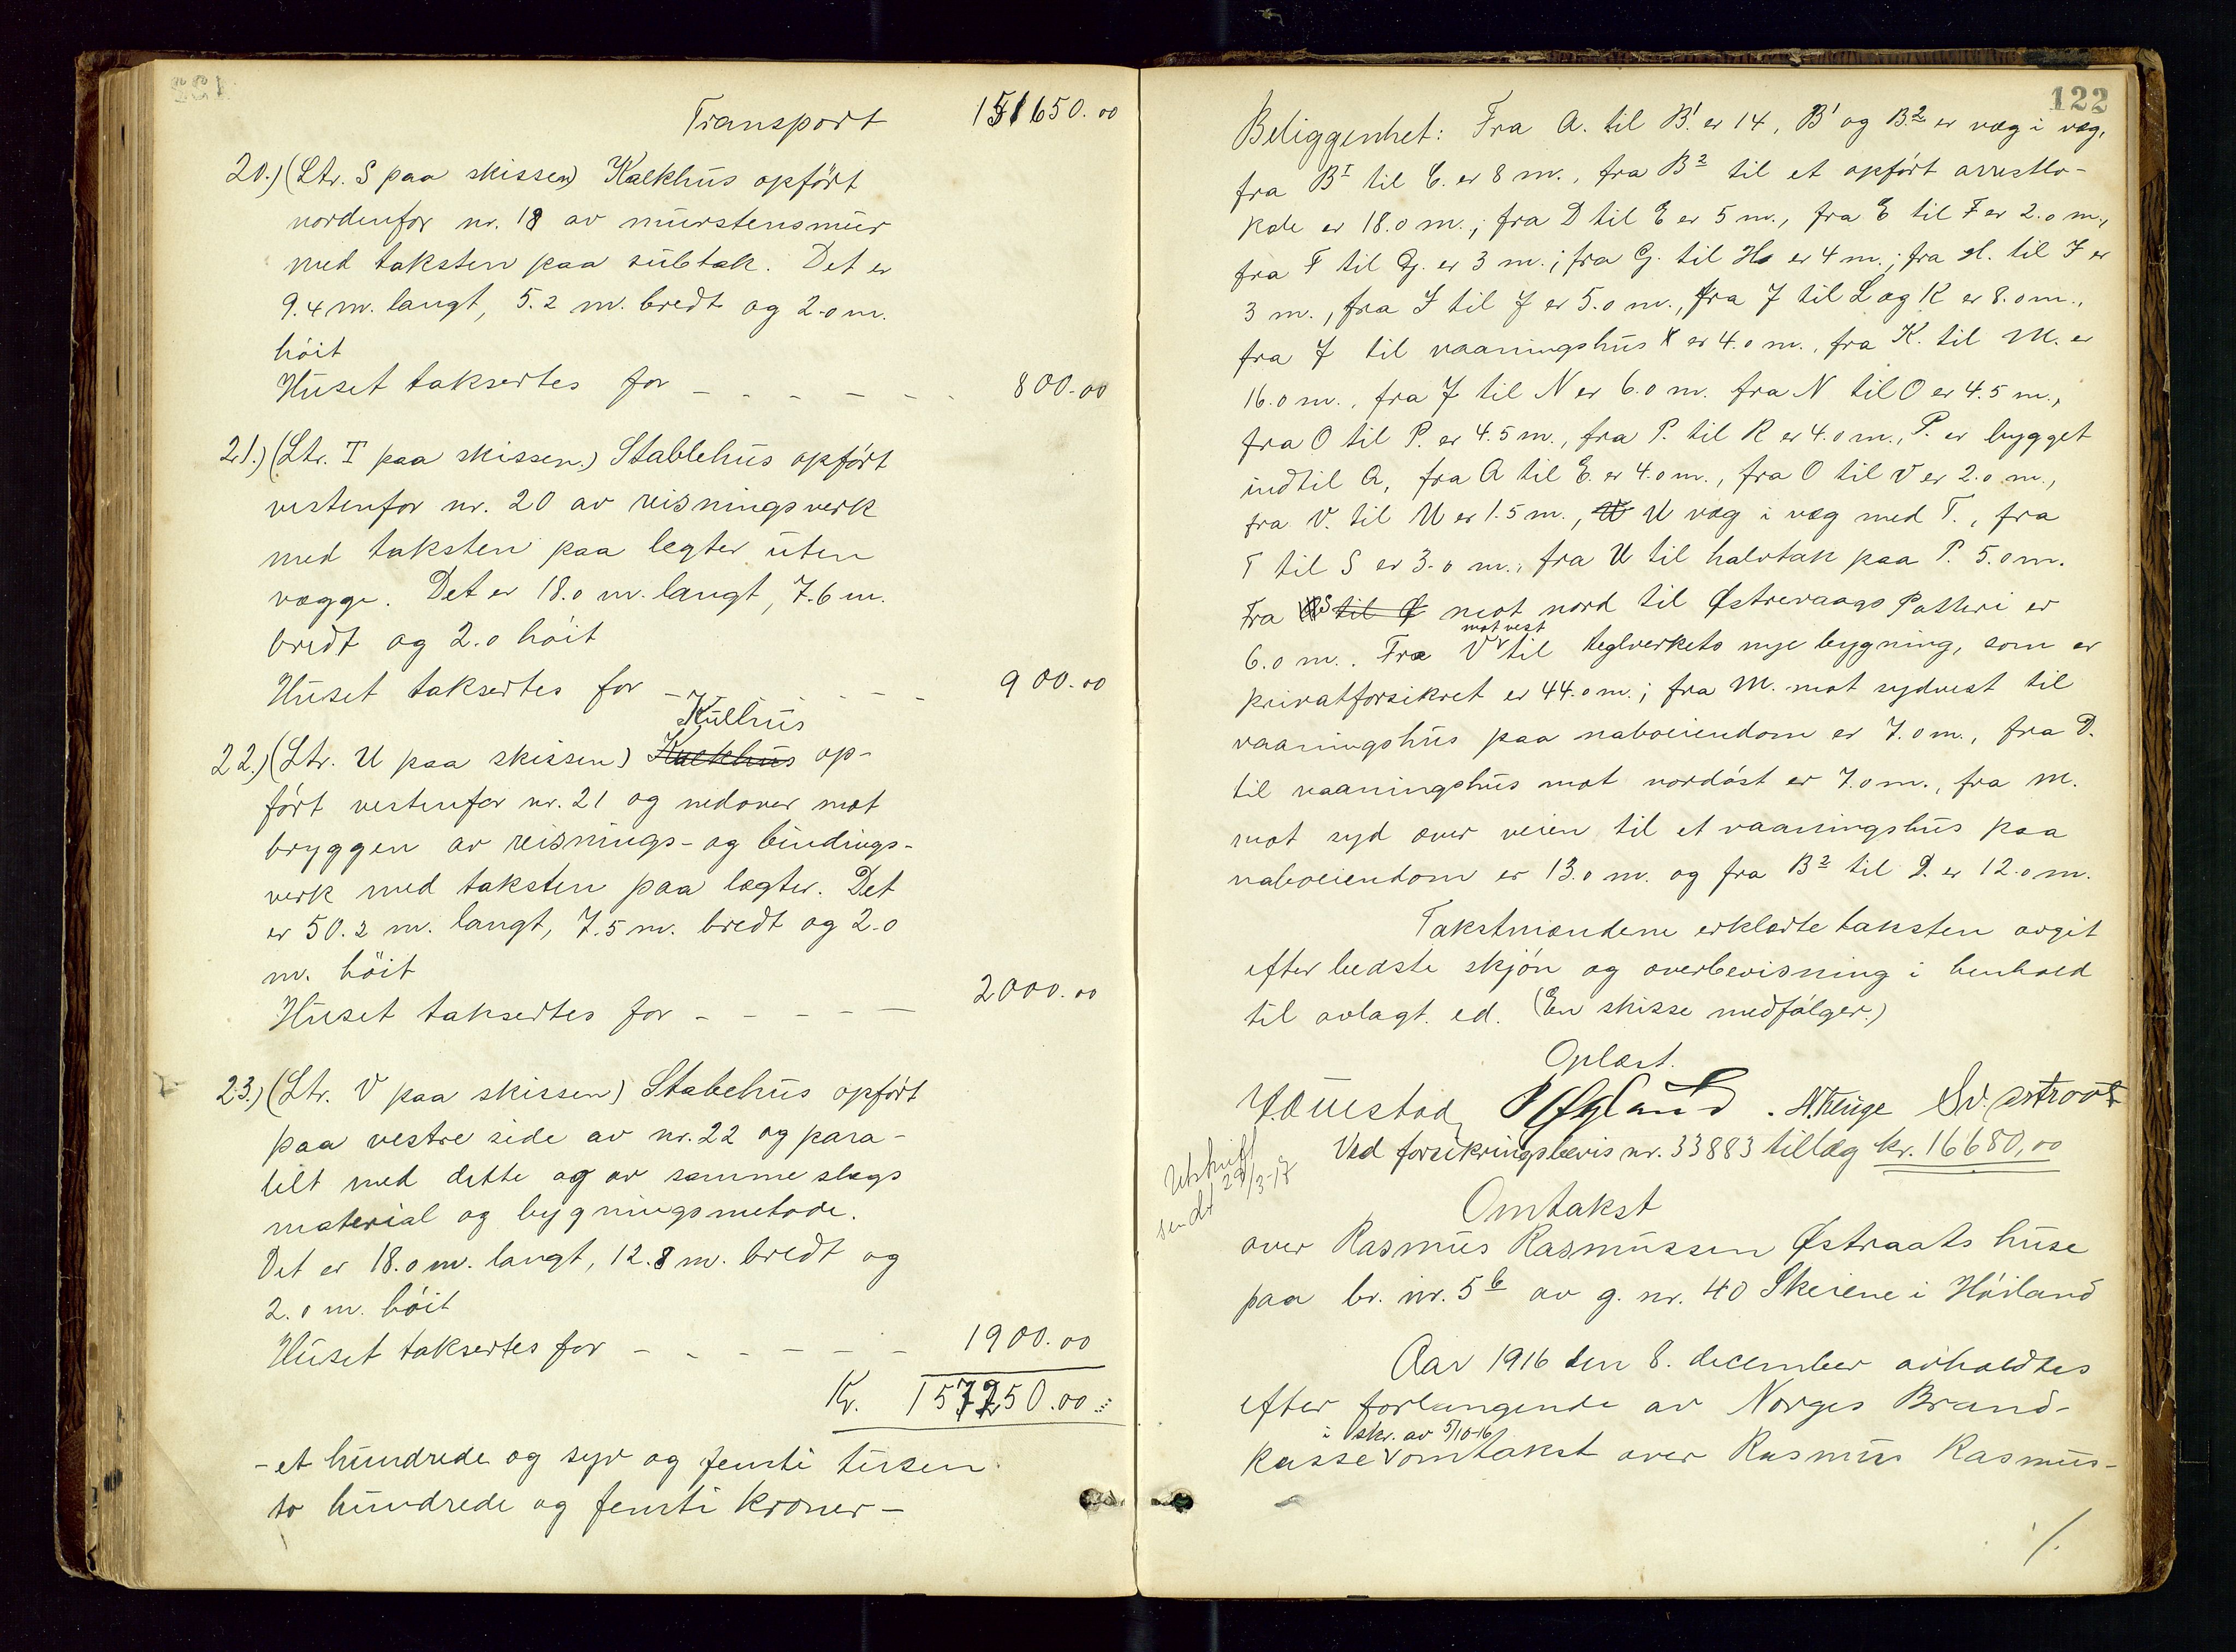 Transport 151650.00
20.) (Ltr. S paa skissen) Kalkhus opført
nordenfor nr. 18 av murstensmur
med taksten paa sutak. Det er
9.4 m. langt, 5.2 m. bredt og 2.0 m.
höit
Huset taksertes for - - - - - - 800.00
21.) (Ltr. T paa skissen.) Stablehus opført
vestenfor nr. 20 av reisningsverk
med taksten paa legter uten
vægge. Det er 18.0 m. langt, 7.6 m.
bredt og 2.0 höit
Huset taksertes for - - - - - - 900.00
Kulhus
22.) (Ltr. U paa skissen) Kalkhus op-
ført vestenfor nr. 21 og nedover mot
bryggen av reisnings- og bindings-
verk med taksten paa lægter. Det
er 50.2 m. langt, 7.5 m. bredt og 2.0
m. höit
Huset taksertes for - - - - - 2000.00
23.) (Ltr. V paa skissen) Stabehus opført
paa vestre side av nr. 22 og para-
lelt med dette og av samme slags
material og bygningsmetode.
Det er 18.0 m. langt, 12.8 m. bredt og
2.0 m. höit
Huset taksertes for - - - - - - 1900.00
Kr. 157250.00
- et hundrede og syv og femti tusen
to hundrede og femti kroner -
122
Beliggenhet: Fra A. til B1. er 14, B1 og B2 er væg i væg,
fra BI til C. er 8 m., fra B2 til et opført arrestlo-
kale er 18.0 m.; fra D til E er 5 m., fra E til F er 2.0 m.,
fra F til G. er 3 m.; fra G. til H er 4 m.; fra H. til I er
3 m., fra I til J er 5.0 m., fra J til L og K er 8.0 m.,
fra J til vaaningshus X er 4.0 m., fra K. til M. er
16.0 m., fra J til N er 6.0 m. fra N til O er 4.5 m.,
fra O til P. er 4.5 m., fra P. til R er 4.0 m., P. er bygget
indtil Q, fra Q til E. er 4.0 m., fra O til V er 2.0 m.,
fra V. til U er 1.5 m., U U væg i væg med T., fra
T til S er 3.0 m., fra U til halvtak paa P. 5.0 m.
Fra S til Ø mot nord til Østrevaags Potteri er
mot vest
6.0 m. Fra V til teglverkets nye bygning, som er
privatforsikret er 44.0 m.; fra M. mot sydvest til
vaaningshus paa naboeiendom er 7.0 m., fra D.
til vaaningshus mot nordøst er 7.0 m., fra M.
mot syd over veien til et vaaningshus paa
naboeiendom er 13.0 m. og fra B2 til D. er 12.0 m.
Takstmændene erklærte taksten avgit
efter bedste skjøn og overbevisning i henhold
til avlagt ed. (En skisse medfølger.)
Oplæst.
Sv. Østraat
Ved forsikringsbevis nr. 33883 tillæg kr. 16680,00
Utskrift
sendt 29/3-17
Omtakst
over Rasmus Rasmussen Østraats huse
paa br. nr. 5b av g. nr. 40 Skeiene i Höiland
Aar 1916 den 8. december avholdtes
efter forlangende av Norges Brand-
i skr. av 5/10-16
kasse omtakst over Rasmus Rasmus-
./.